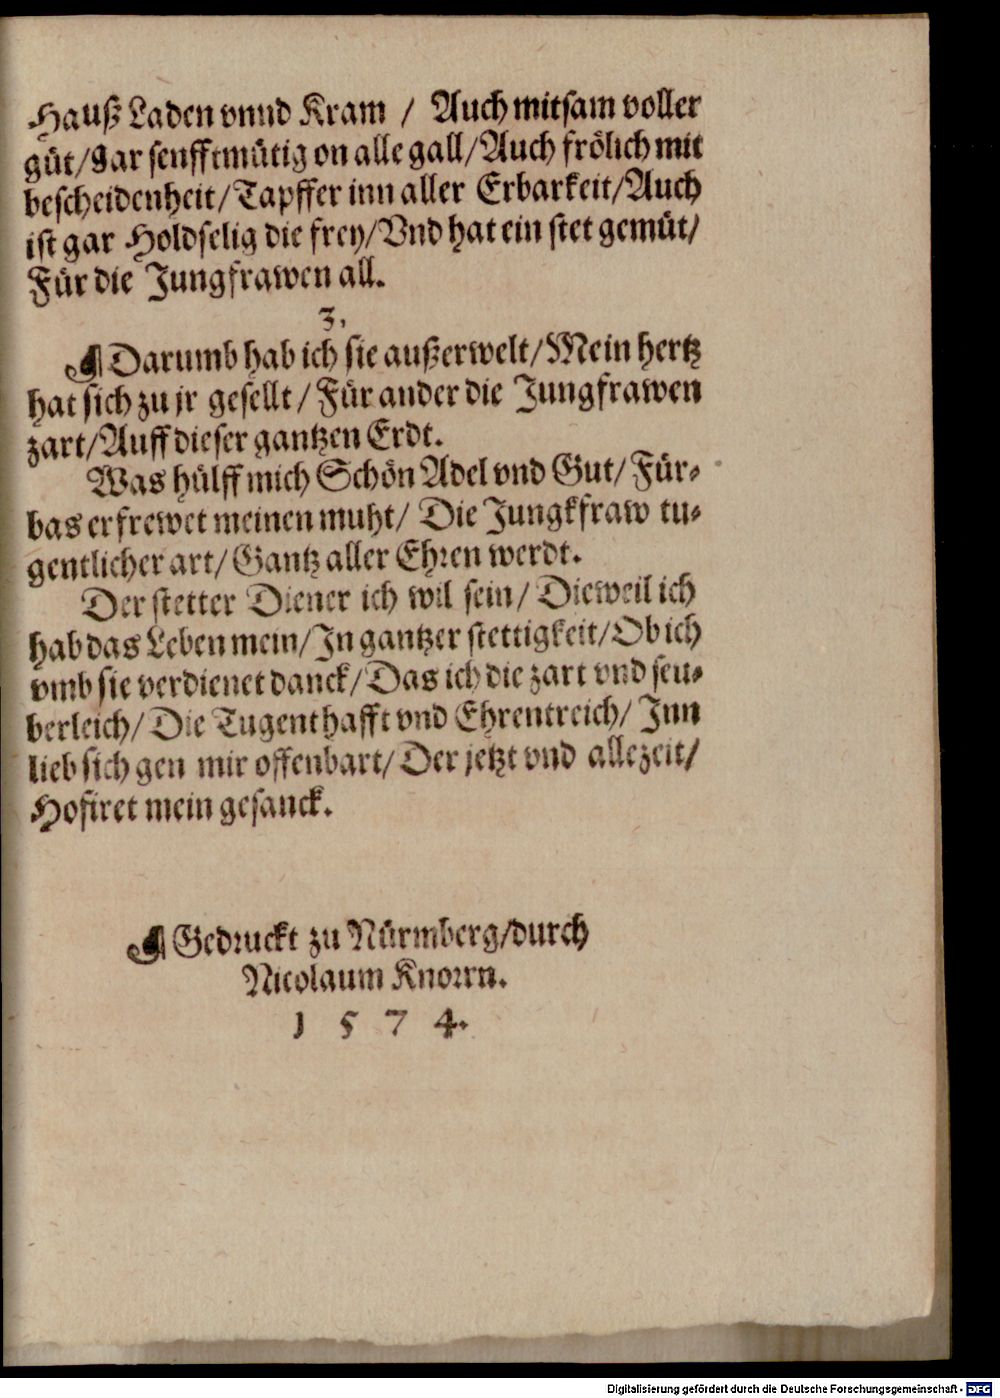 Hauß Laden vnnd Kram / Auch mitsam voller
güt/gar senfftmütig on alle gall/Auch frölich mit
bescheidenheit/Tapffer inn aller Erbarkeit/Auch
ist gar Holdselig die frey/Vnd hat ein stet gemüt/
Für die Jungfrawen all.
3.
¶ Darumb hab ich sie außerwelt/Mein hertz
hat sich zu jr gesellt / Für ander die Jungfrawen
zart/Auff dieser gantzen Erdt.
Was hülff mich Schön Adel vnd Gut/ Für-
bas erfrewet meinen muht/ Die Jungkfraw tu-
gentlicher art/ Gantz aller Ehren werdt.
Der stetter Diener ich wil sein/ Dieweil ich
hab das Leben mein/In gantzer stettigkeit/Ob ich
vmb sie verdienet danck/Das ich die zart vnd seu-
berleich/ Die Tugenthafft vnd Ehrentreich/ Inn
lieb sich gen mir offenbart/ Der jetzt vnd allezeit/
Hofiret mein gesanck.
¶ Gedruckt zu Nürmberg/durch
Nicolaum Knorrn.
1 5 7 4.
Digitalisierung gefördert durch die Deutsche Forschungsgemeinschaft - DFG